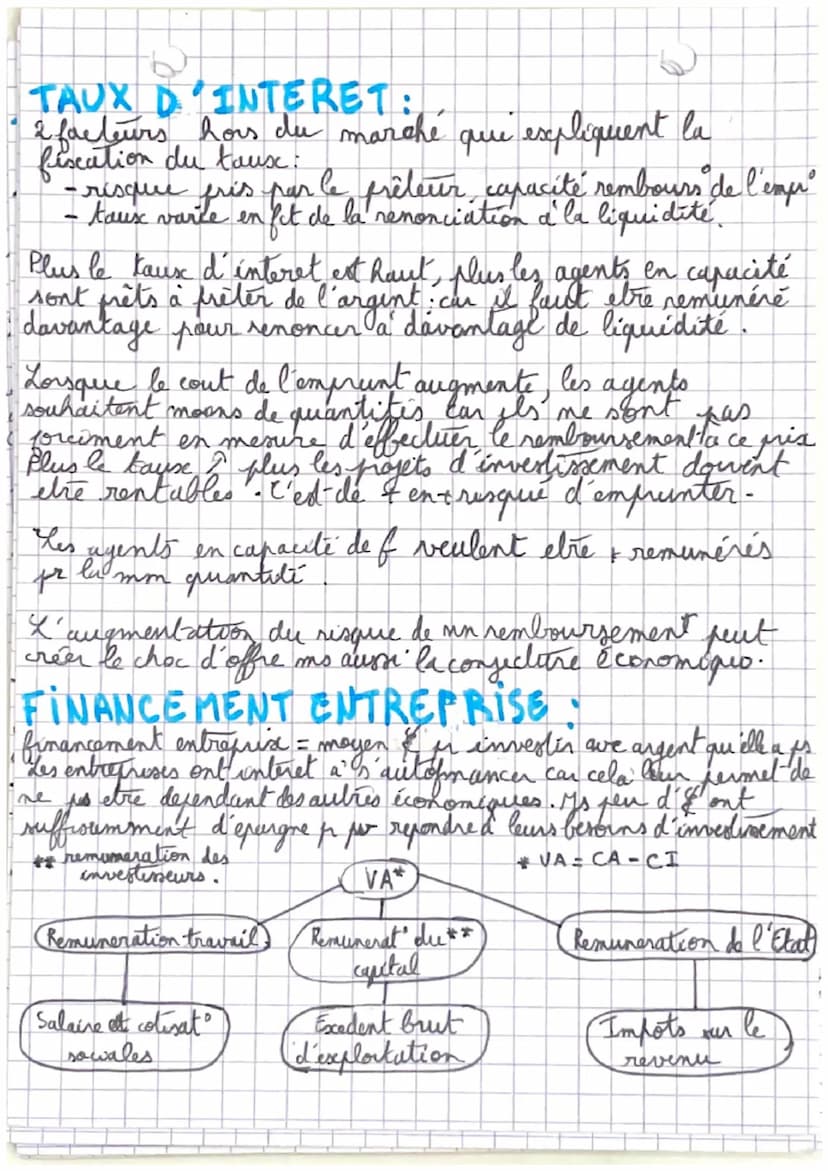 TAUX D'INTERET :
2 facteurs hors du marché qui expliquent la
fixcation du taux :
- risque pris par le prêteur, capacité rembours° de l'empr°
- taux varie en fct de la renonciation à la liquidité.
Plus le taux d'interet est haut, plus les agents en capacité
sont prêts à prêter de l'argent : car il faut etre remunéré
davantage pour renoncer à davantage de liquidité.
Lorsque le cout de l'emprunt augmente, les agents
souhaitent moins de quantités car ils ne sont pas
forcément en mesure d'effectuer le remboursement à ce prix
Plus le taux ↗ plus les projets d'investissement doivent
etre rentables. C'est-de + en + risqué d'emprunter.
Les agents en capacité de f veulent etre + remunérés
pr la mm quantité.
L'augmentation du risque de nn remboursement peut
créer le choc d'offre ms aussi la conjecture économique.
FINANCEMENT ENTREPRISE :
financement entreprise = moyen pr investir avc argent qu'elle a ps
Les entreprises ont interet à s'autofinancer car cela leur permet de
ne ps etre dependant des autres économiques. Ms peu d' ont
suffisamment d'epargne pr repondre à leurs besoins d'investissement
** remuneration des
investisseurs.
* VA = CA - CI
VA*
Remuneration travail
Remunerat° du**
capital
Remuneration de l'Etat
Salaire et cotisat°
sociales
Excedent brut
d'exploitation
Impots sur le
revenu